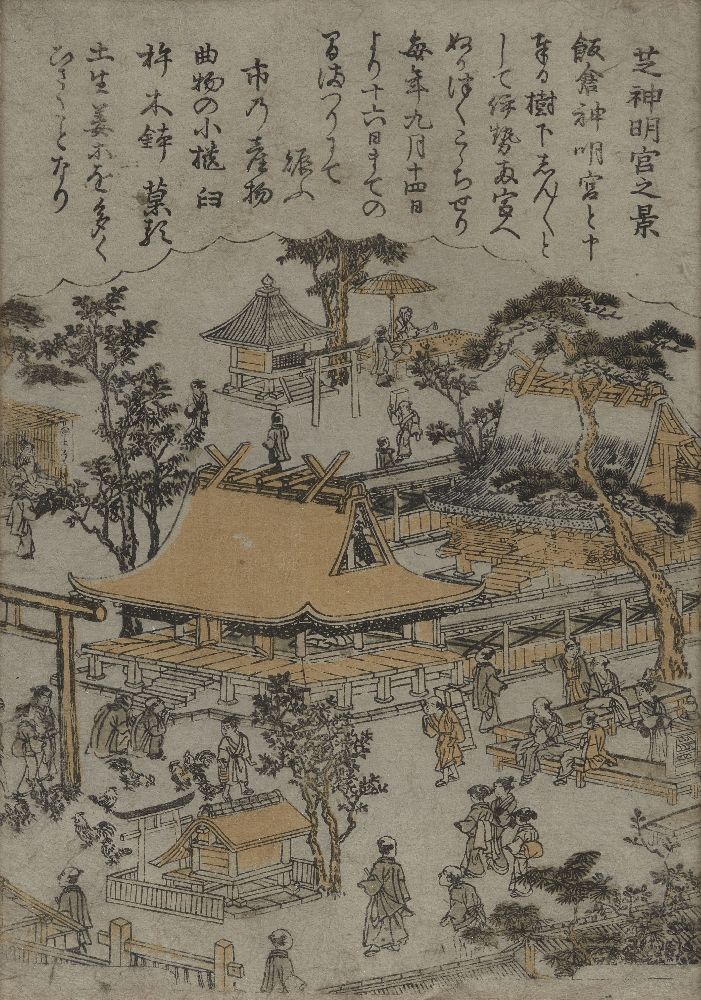 芝神明宮之景
飯倉神明宮と申
奉る樹下しん〳〵と
して伊勢両宮へ
ぬかづくこゝちせり
毎年九月十四日
より十六日までの
間まつりにて
賑ふ
市乃産物
曲物の小櫃 臼
杵 木鉢 菓子
土生姜等を多く
ひさくことなり